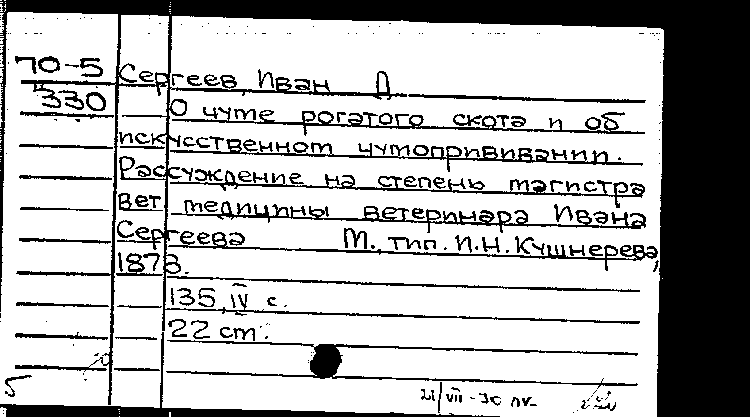 70-5 Сергеев, Иван Д
330 О чуме рогатого скота и об
искусственном чумопрививании.
Рассуждение на степень магистра
вет. медицины ветеринара Ивана
Сергеева М., тип. И.Н. Кушнерева,
1878.
135, IV с.
22 см.
21/VII-70
5